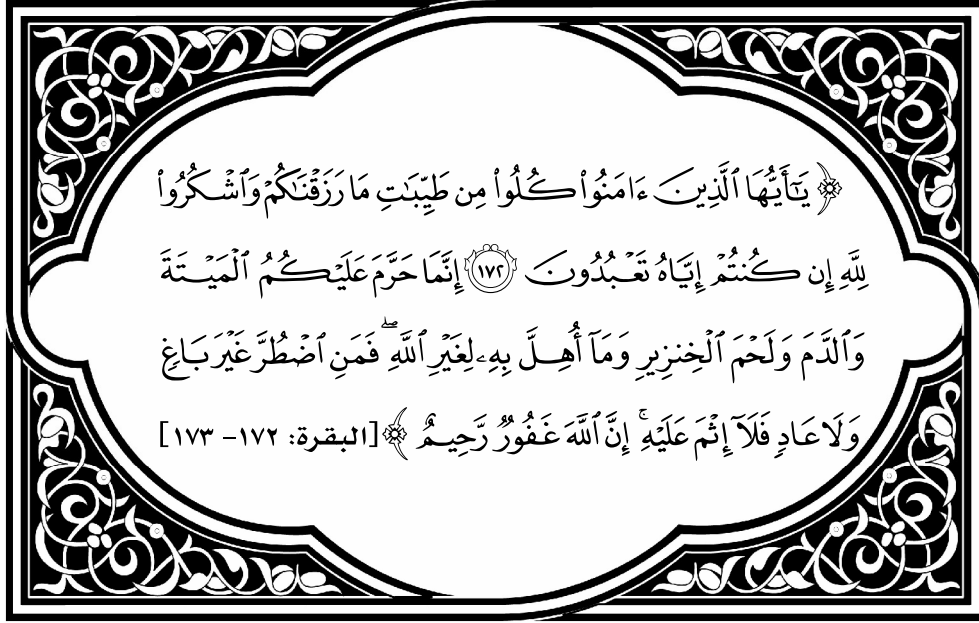 ﴿ يَٰٓأَيُّهَا ٱلَّذِينَ ءَامَنُواْ كُلُواْ مِن طَيِّبَٰتِ مَا رَزَقۡنَٰكُمۡ وَٱشۡكُرُواْ
لِلَّهِ إِن كُنتُمۡ إِيَّاهُ تَعۡبُدُونَ ١٧٢ إِنَّمَا حَرَّمَ عَلَيۡكُمُ ٱلۡمَيۡتَةَ
وَٱلدَّمَ وَلَحۡمَ ٱلۡخِنزِيرِ وَمَآ أُهِلَّ بِهِۦ لِغَيۡرِ ٱللَّهِۖ فَمَنِ ٱضۡطُرَّ غَيۡرَ بَاغٖ
وَلَا عَادٖ فَلَآ إِثۡمَ عَلَيۡهِۚ إِنَّ ٱللَّهَ غَفُورٞ رَّحِيمٌ ﴾ [البقرة: ١٧٢- ١٧٣]